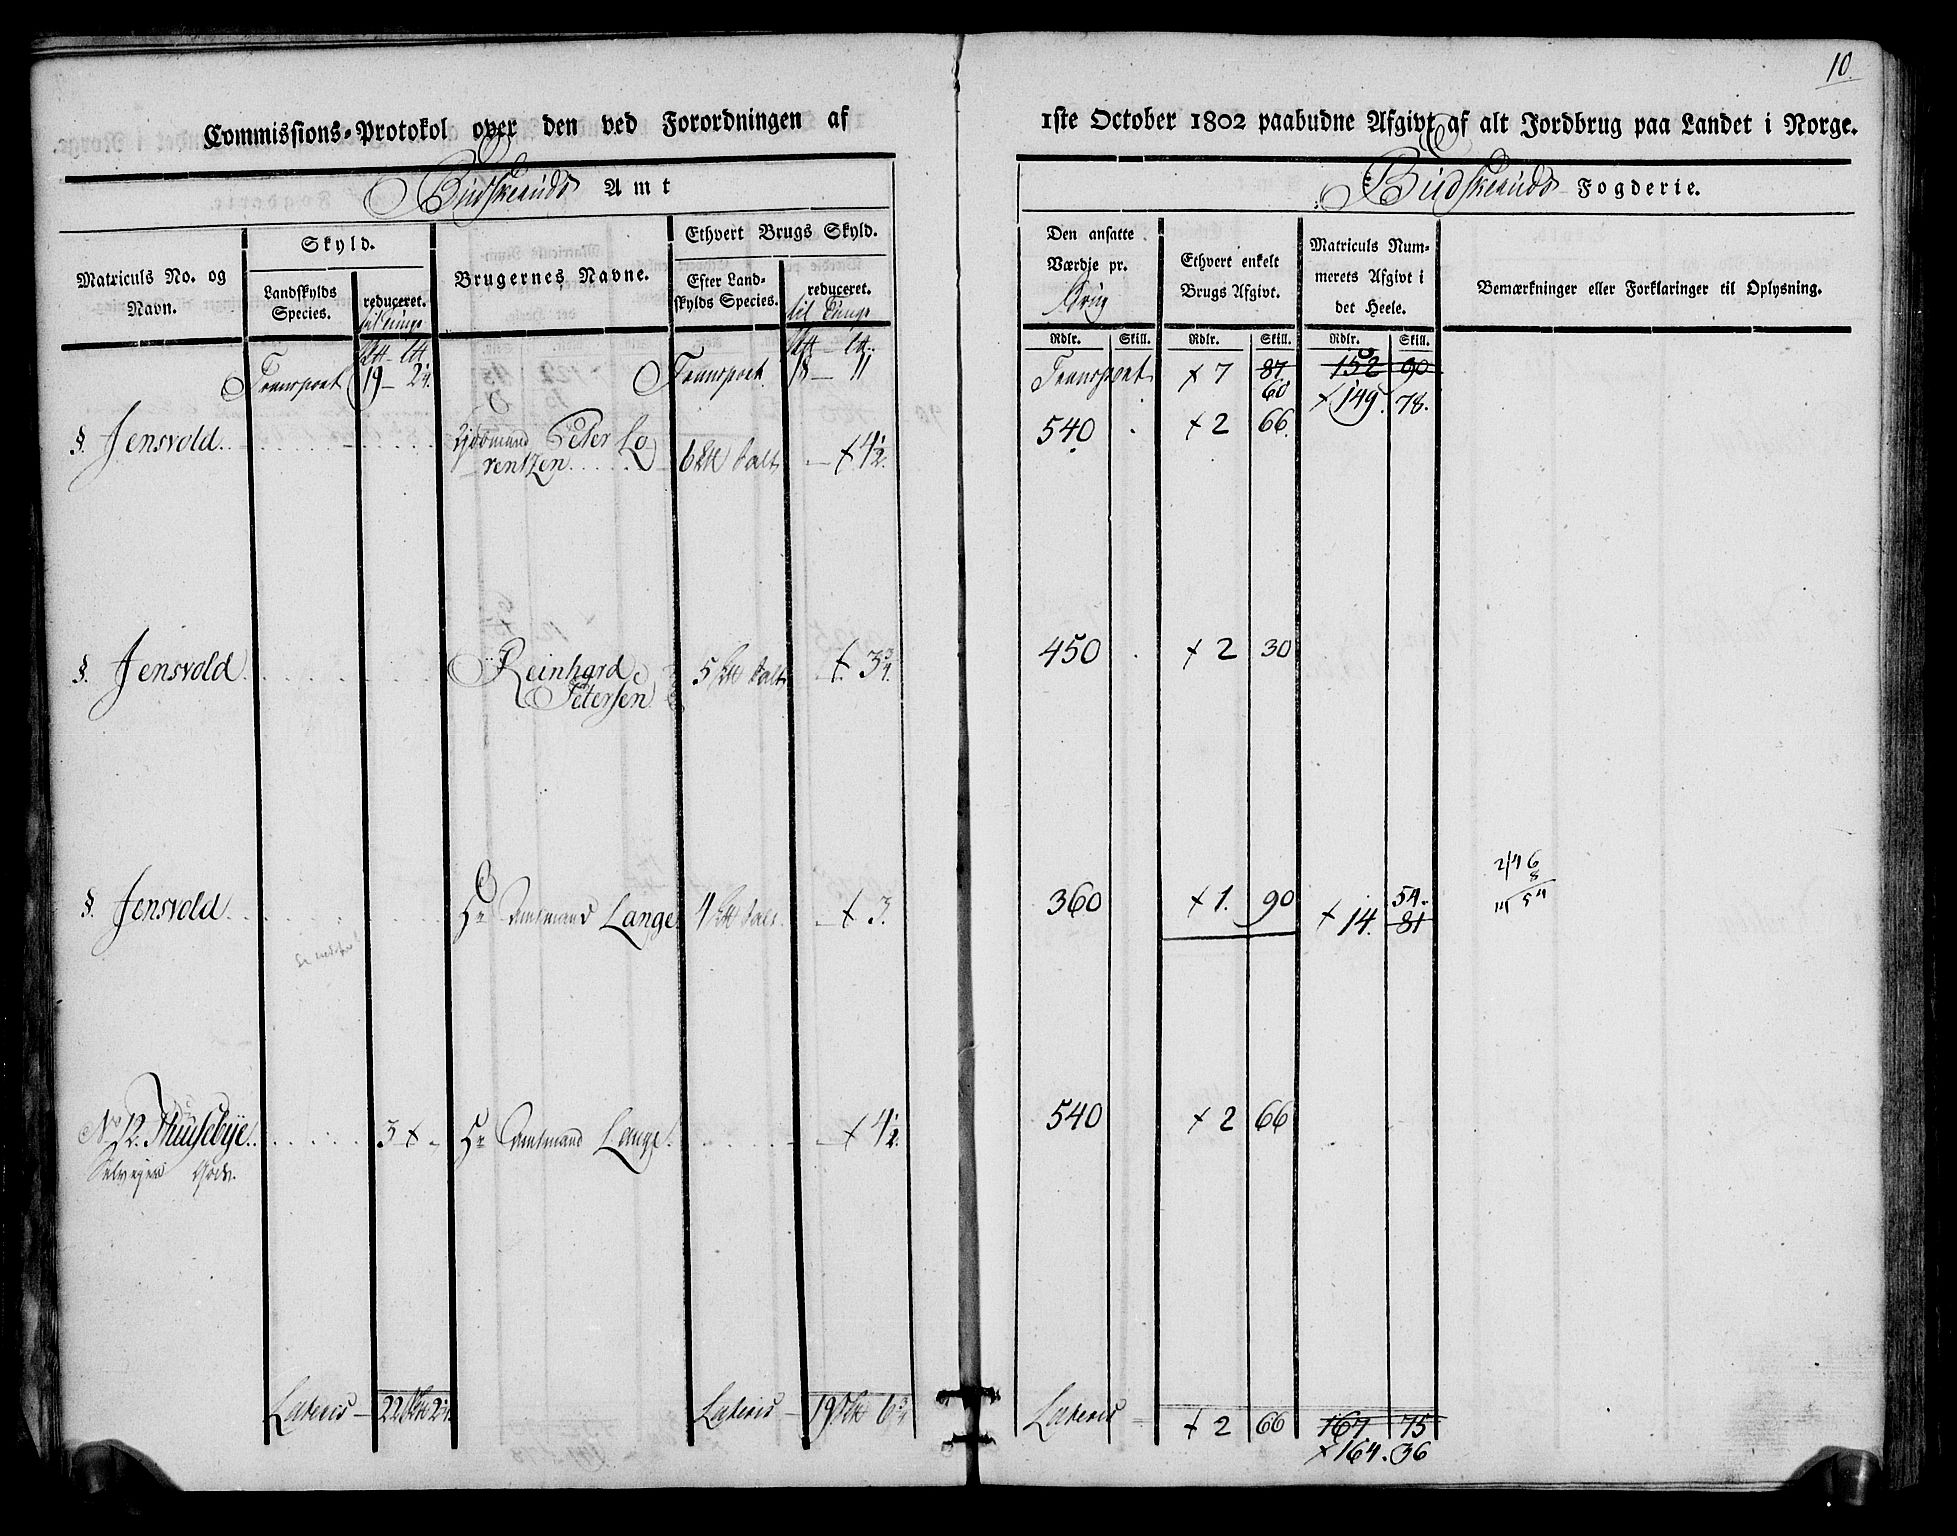 10.
Commissions-Protokol over den ved Forordningen af 1ste October 1802 paabudne Afgivt af alt Jordbrug paa Landet i Norge.
Budskeruds Amt
Budskeruds Fogderie.
Matriculs No. og Navn.
Skyld.
Landskylds Species.
reduceret. til Tunge
Brugernes Navne.
Ethvert Brugs Skyld.
Efter Landskylds Species.
reduceret. til Tunge
Den ansatte Værdie pr. Brug
Ethvert enkelt Brugs Afgivt.
Matriculs Nummerets Afgivt i det Heele.
Bemærkninger eller Forklaringer til Oplysning.
Rdlr. Skill. Rdlr. Skill. Rdlr. Skill.
Transport 19 - 2¼. Transport. 18 - 11 Transport + 7 87 152 90
60 + 149. 78.
§. Jensvold. Peder Lo 540 . + 2 66.
rentzen. 6 Salt - + 4½.
§. Jensvold. Reinhard 5 Salt + 3¾. 450 . + 2 30
Petersen
§. Jensvold. Hr Amtmand Lange. 4 Salt - + 3. 360 + 1. 90 + 14. 54.
81
No 12. Huusebye. 3 + - Hr Amtmand Lange. - + 4½. 540 + 2 66
Selveger Gods.
Lateris - 22 2¼. Lateris - 19 6¾ Lateris + 2 66 167 75
+ 164. 36